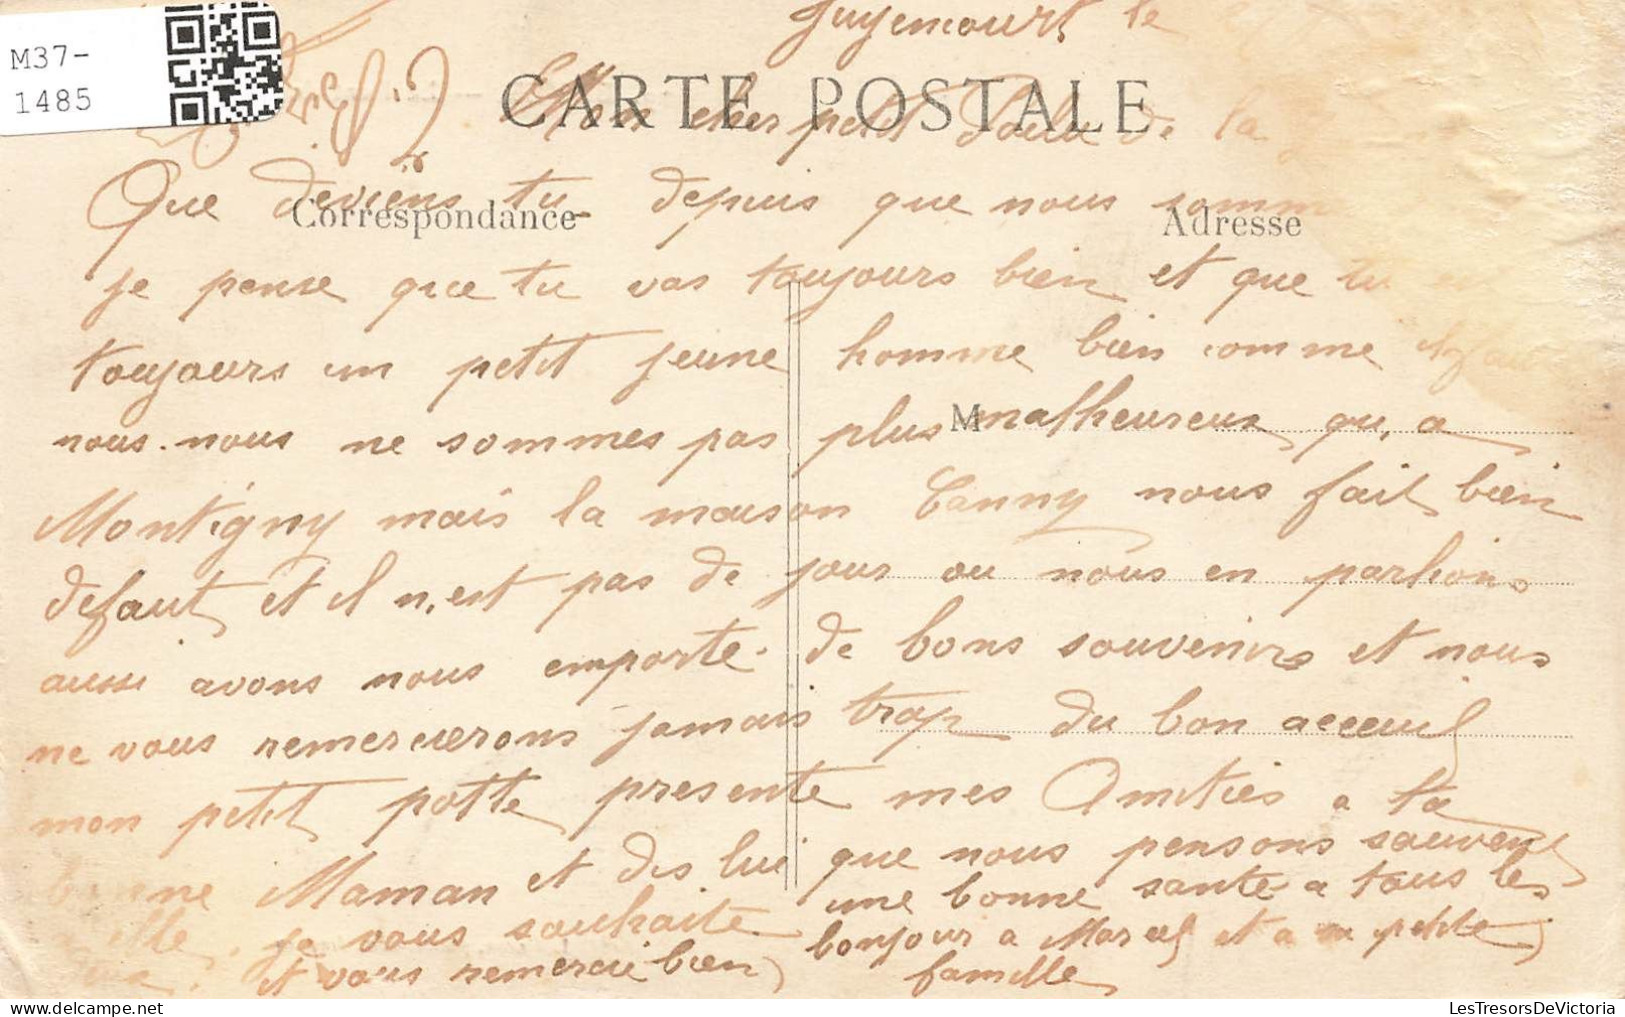 M37-
1485
Juyencourt, le
CARTE POSTALE
Mon cher petit Poilu de la
Que deviens tu depuis que nous somm
Correspondance
Adresse
je pense que tu vas toujours bien et que tu
toujours un petit jeune homme bien comme
nous. nous ne sommes pas plus malheureux qu, a
M
Montigny mais la maison nous fait bien
defaut, et il n,est pas de jour ou nous en parlions
aussi avons nous emporte. de bons souvenirs et nous
ne vous remercierons jamais trop du bon acceuil
mon petit potte presente mes Amitiés a ta
bonne Maman et dis lui que nous pensons souvent
je vous souhaite une bonne santé a tous les
et vous remercie bien bonjour a Marcel et a petite
famille
LesTresorsDeVictoria